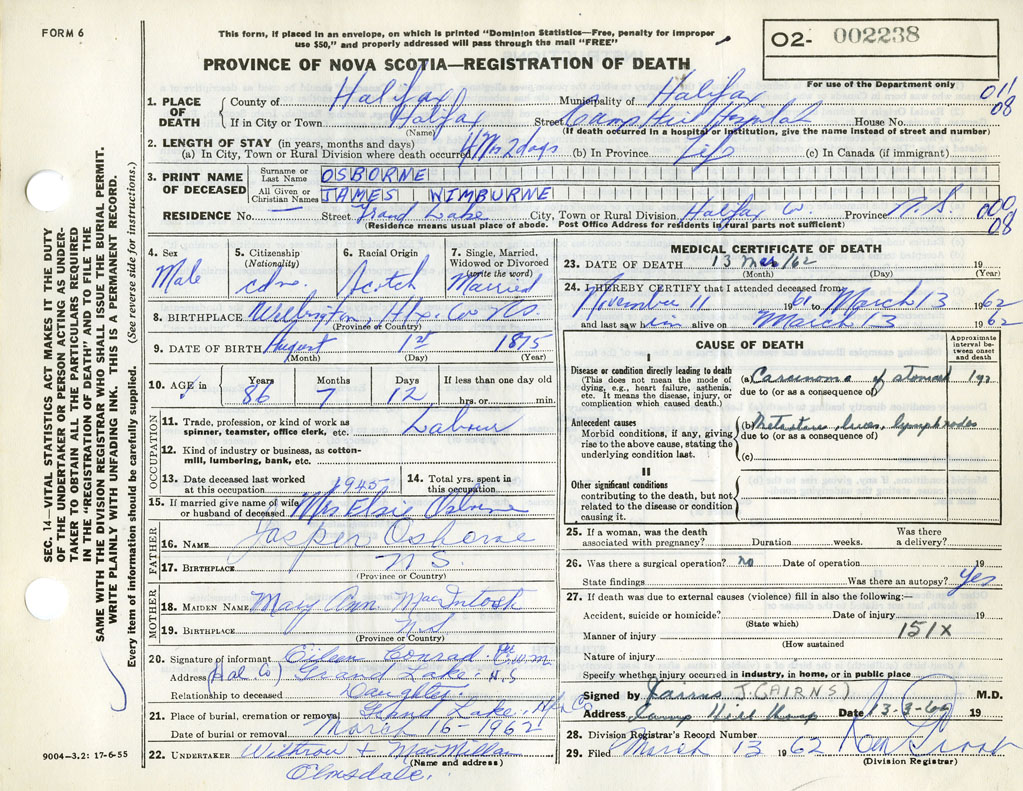 FORM 6
This form, if placed in an envelope, on which is printed "Dominion Statistics—Free, penalty for improper
use $50," and properly addressed will pass through the mail "FREE"
02- 002238
For use of the Department only
PROVINCE OF NOVA SCOTIA—REGISTRATION OF DEATH
011
08
1. PLACE OF DEATH { County of Halifax Municipality of Halifax
If in City or Town Halifax Street Camp Hill Hospital House No.
(Name) (If death occurred in a hospital or institution, give the name instead of street and number)
2. LENGTH OF STAY (in years, months and days)
(a) In City, Town or Rural Division where death occurred 4 Mos 2 days (b) In Province Life (c) In Canada (if immigrant)
3. PRINT NAME OF DECEASED { Surname or Last Name OSBORNE
All Given or Christian Names JAMES WIMBURNE
RESIDENCE No. — Street Grand Lake City, Town or Rural Division Halifax Co. Province N.S. 000
08
(Residence means usual place of abode. Post Office Address for residents in rural parts not sufficient)
4. Sex Male
5. Citizenship (Nationality) cdn.
6. Racial Origin Scotch
7. Single, Married, Widowed or Divorced (write the word) Married
8. BIRTHPLACE Wellington, Hfx. Co. N.S.
(Province or Country)
9. DATE OF BIRTH August 1st 1875
(Month) (Day) (Year)
10. AGE in { Years 86 Months 7 Days 12 If less than one day old hrs. or min.
OCCUPATION
11. Trade, profession, or kind of work as spinner, teamster, office clerk, etc. Labour
12. Kind of industry or business, as cotton-mill, lumbering, bank, etc.
13. Date deceased last worked at this occupation 1945
14. Total yrs. spent in this occupation
15. If married give name of wife or husband of deceased Mrs Elsie Osborne
FATHER
16. NAME Jasper Osborne
17. BIRTHPLACE N.S.
(Province or Country)
MOTHER
18. MAIDEN NAME Mary Ann MacIntosh
19. BIRTHPLACE N.S.
(Province or Country)
20. Signature of informant Eileen Conrad Per C.W.M.
Address (Hal. Co) Grand Lake. N.S
Relationship to deceased Daughter.
21. Place of burial, cremation or removal Grand Lake. Hfx Co
Date of burial or removal March 16-1962
22. UNDERTAKER Withrow + MacMillan
(Name and address)
Elmsdale.
MEDICAL CERTIFICATE OF DEATH
23. DATE OF DEATH 13 Mar /62 19
(Month) (Day) (Year)
24. I HEREBY CERTIFY that I attended deceased from:
November 11 1961 to March 13 1962
and last saw him alive on March 13 1962
CAUSE OF DEATH
Approximate interval between onset and death
I
Disease or condition directly leading to death
(This does not mean the mode of dying, e.g., heart failure, asthenia, etc. It means the disease, injury, or complication which caused death.)
(a) Carcinoma of stomach 1 yr
due to (or as a consequence of)
Antecedent causes
Morbid conditions, if any, giving rise to the above cause, stating the underlying condition last.
(b) Metastases, liver, lymph nodes
due to (or as a consequence of)
(c)
II
Other significant conditions
contributing to the death, but not related to the disease or condition causing it.
25. If a woman, was the death associated with pregnancy? Duration weeks. Was there a delivery?
26. Was there a surgical operation? no Date of operation 19
State findings Was there an autopsy? Yes
27. If death was due to external causes (violence) fill in also the following:—
Accident, suicide or homicide? Date of injury 19
(State which)
151X
Manner of injury
(How sustained)
Nature of injury
Specify whether injury occurred in industry, in home, or in public place
Signed by J Cairns (J. CAIRNS) M.D.
Address Camp Hill Hosp Date 13-3-62 19
28. Division Registrar's Record Number
29. Filed March 13 1962
(Division Registrar)
SEC. 14—VITAL STATISTICS ACT MAKES IT THE DUTY
OF THE UNDERTAKER OR PERSON ACTING AS UNDER-
TAKER TO OBTAIN ALL THE PARTICULARS REQUIRED
IN THE "REGISTRATION OF DEATH" AND TO FILE THE
SAME WITH THE DIVISION REGISTRAR WHO SHALL ISSUE THE BURIAL PERMIT.
WRITE PLAINLY WITH UNFADING INK. THIS IS A PERMANENT RECORD.
Every item of information should be carefully supplied. (See reverse side for instructions.)
9004—3.2: 17-6-55